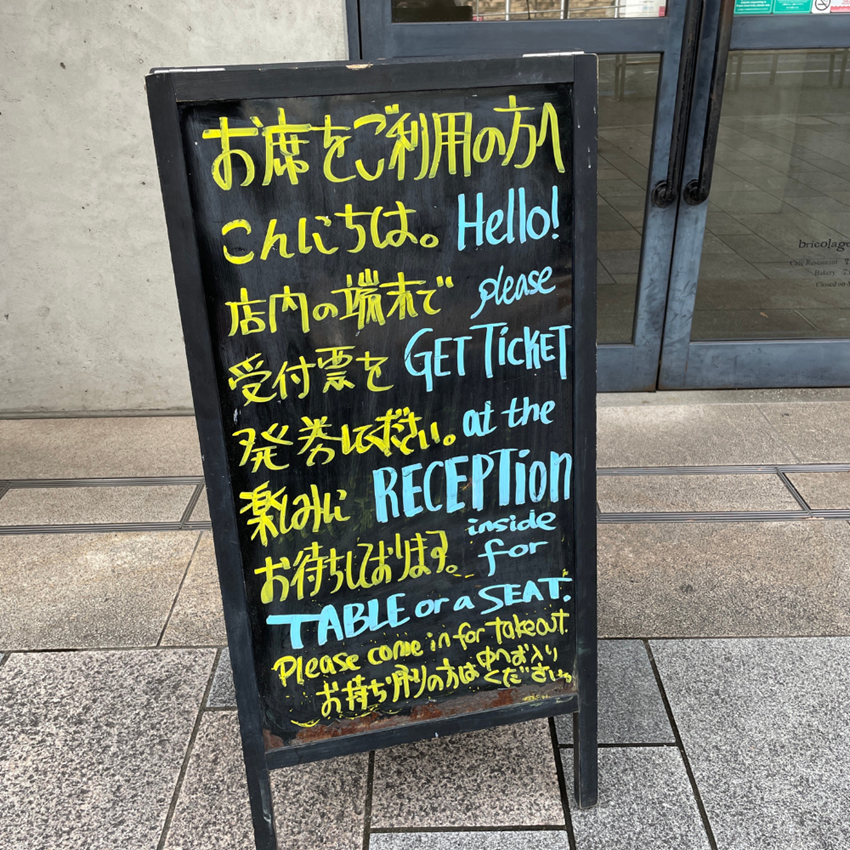 お席をご利用の方へ
こんにちは。 Hello!
店内の端末で please
受付票を GET TiCKET
発券して下さい。 at the
楽しみに RECEPTiON
inside
お待ちしております。 for
TABLE or a SEAT.
Please come in for takeout.
お持ち帰りの方は中へお入り
ください
bricolage